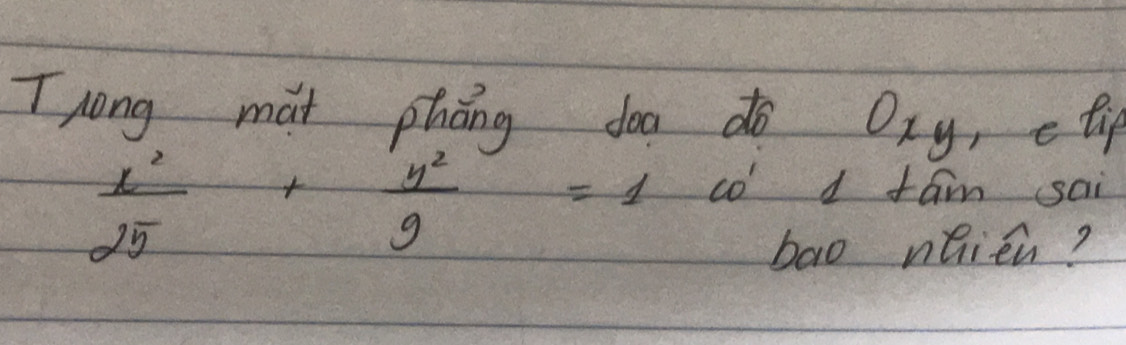 Trong mặt phẳng tọa độ Oxy, elip
x²/25 + y²/9 = 1 có 1 tâm sai
bao nhiên?